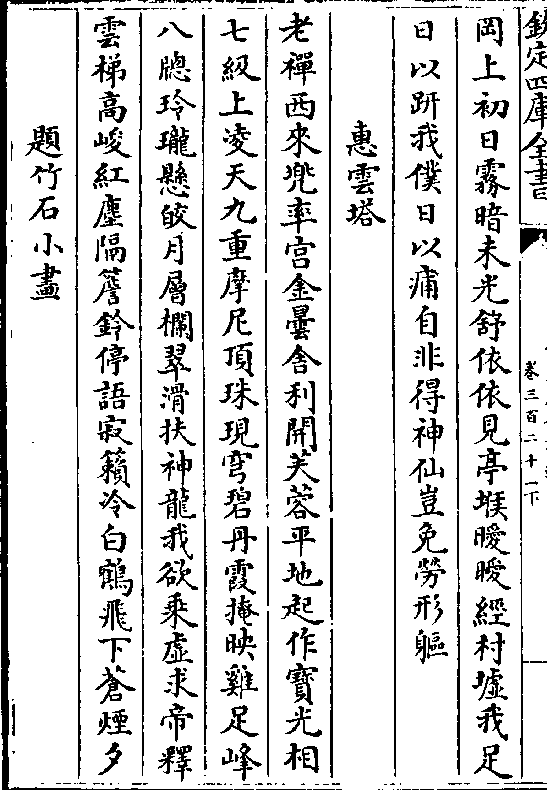 欽定四庫全書
卷三百二十一下
岡上初日霧暗未光舒依依見亭堠曖曖經村墟我足
日以趼我僕日以痡自非得神仙豈免勞形軀
惠雲塔
老禪西來兠率宫金曇舍利開芙蓉平地起作寳光相
七級上凌天九重摩尼頂珠現穹碧丹霞掩映雞足峰
八牕玲瓏懸皎月層欄翠滑扶神龍我欲乘虚求帝釋
雲梯高峻紅塵隔簷鈴停語寂籟冷白鶴飛下蒼煙夕
題竹石小畫